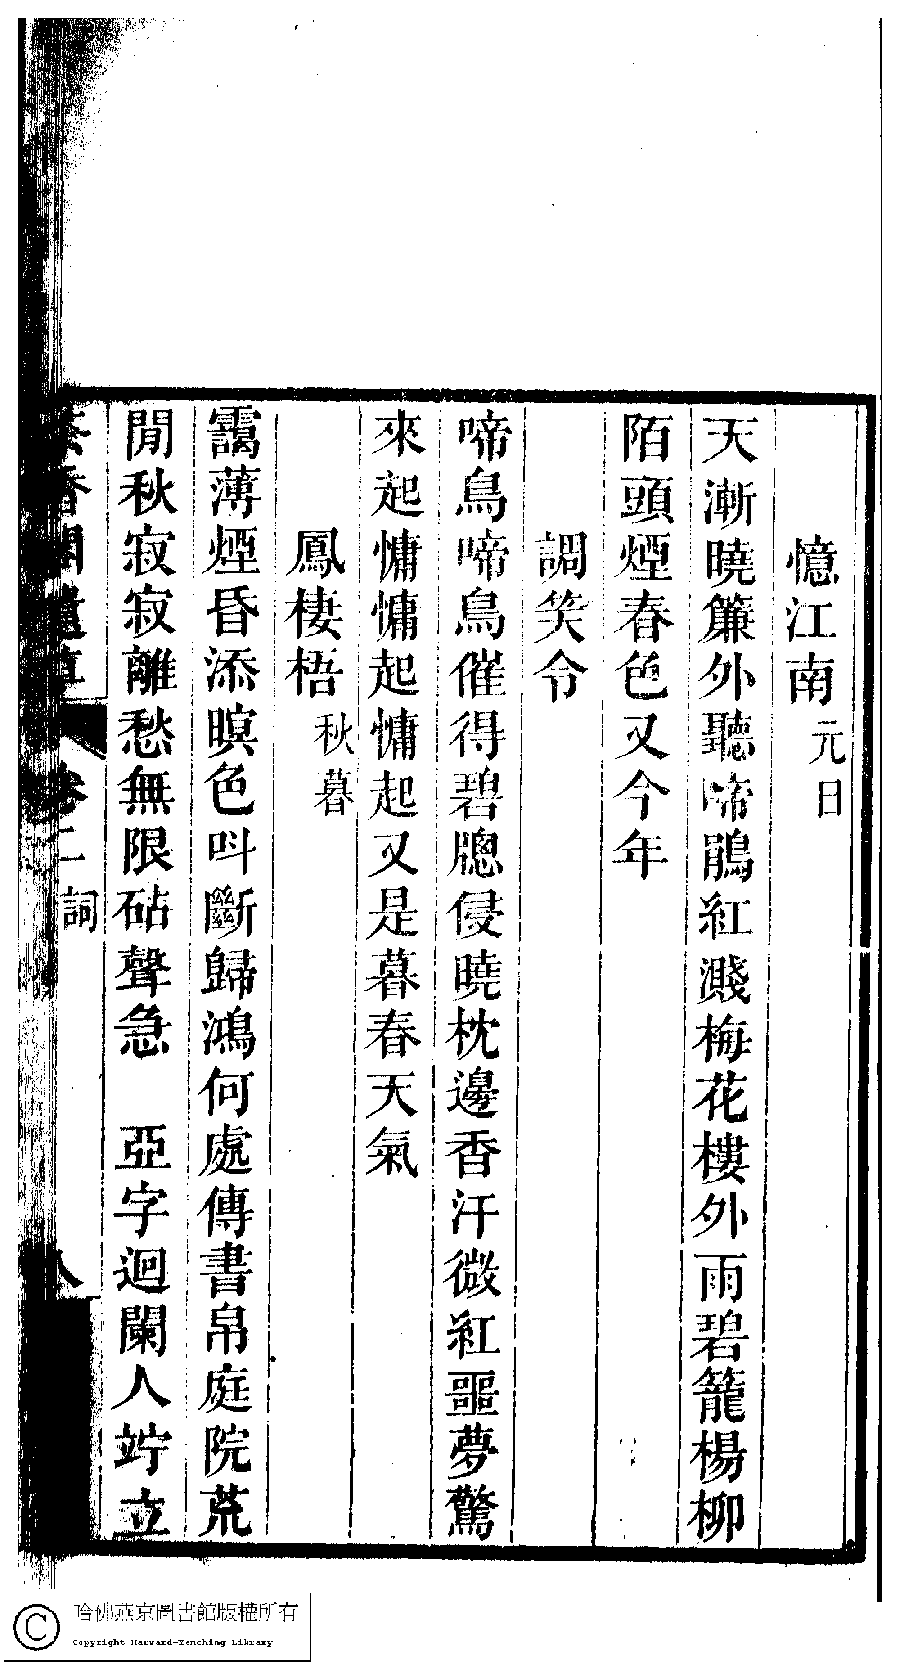 憶江南元日
天漸曉簾外聽啼鵑紅濺梅花樓外雨碧籠楊柳
陌頭煙春色又今年
調笑令
啼鳥啼鳥催得碧牕侵曉枕邊香汗微紅噩夢驚
來起慵慵起慵起又是暮春天氣
鳳棲梧秋暮
靄薄煙昏添暝色呌斷歸鴻何處傳書帛庭院荒
閒秋寂寂離愁無限砧聲急　亞字迴闌人竚立
香閣遺草
卷二詞
八
哈佛燕京圖書館版權所有
Copyright Harvard-Yenching Library